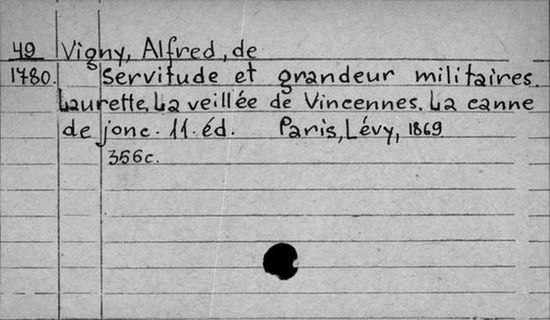 49 Vigny, Alfred, de
1780. Servitude et grandeur militaires.
Laurette, La veillée de Vincennes. La canne
de jonc. 11. éd. Paris, Lévy, 1869
356c.